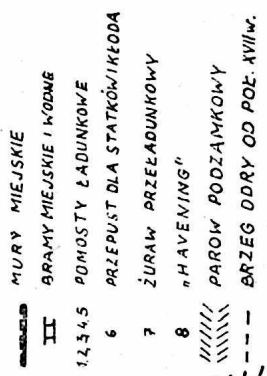 MURY MIEJSKIE
BRAMY MIEJSKIE I WODNE
1,2,3,4,5 POMOSTY ŁADUNKOWE
6 PRZEPUST DLA STATKÓW I KŁODA
7 ŻURAW PRZEŁADUNKOWY
8 „HAVENING"
PAROW PODZAMKOWY
BRZEG ODRY OD POŁ. XVII W.